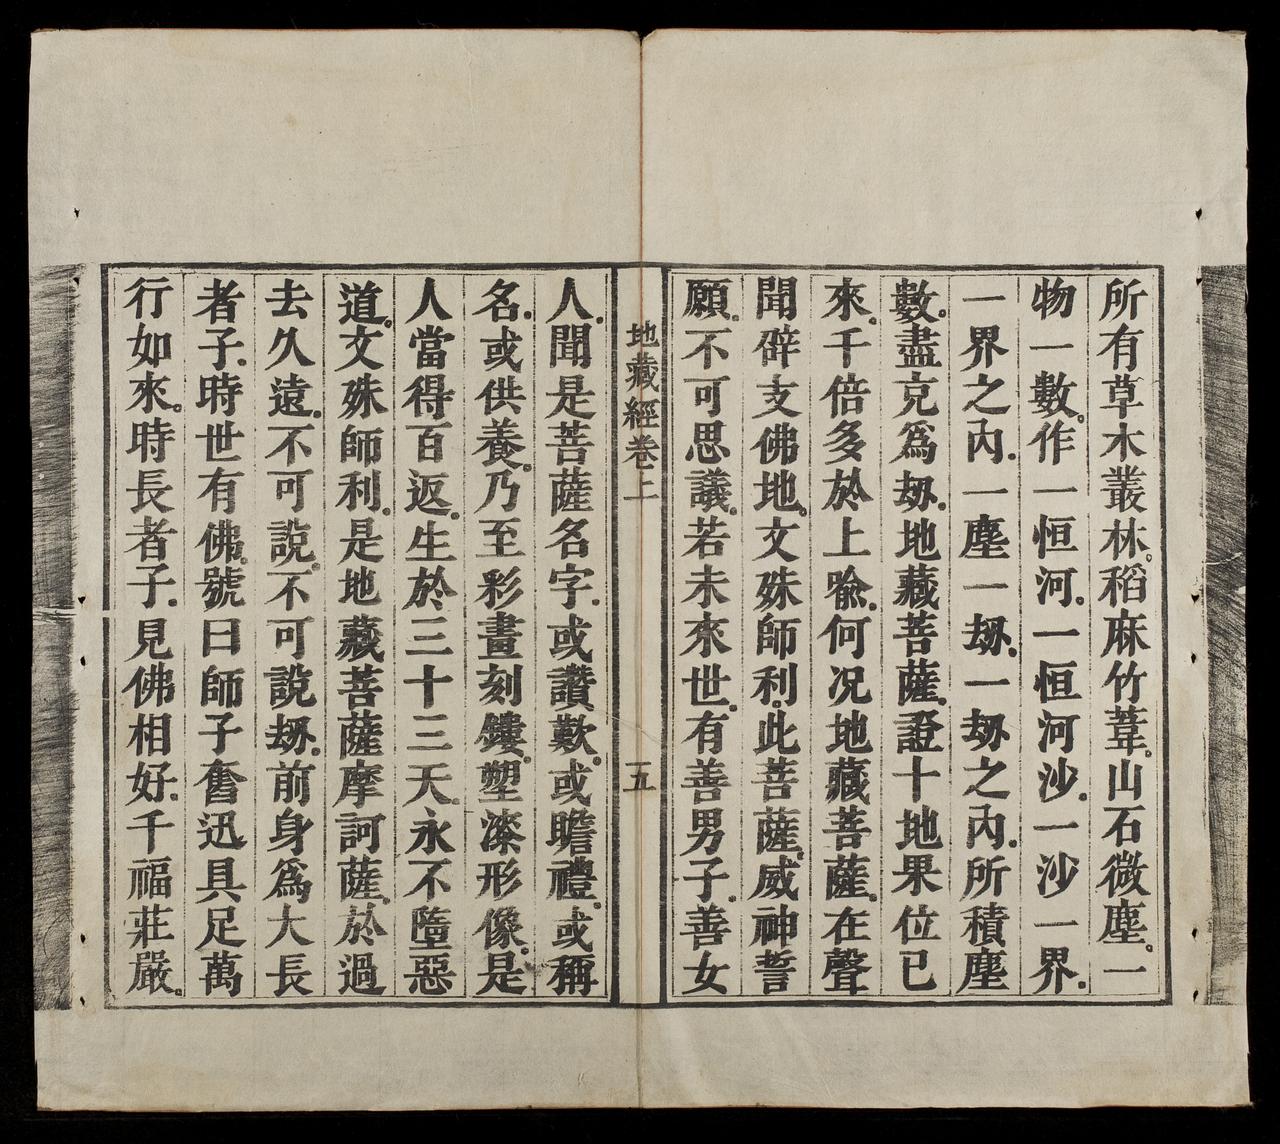 所有草木叢林。稻麻竹葦。山石微塵。一
物一數。作一恒河。一恒河沙。一沙一界。
一界之內。一塵一刼。一刼之內。所積塵
數。盡克爲刼。地藏菩薩。證十地果位已
來。千倍多於上喻。何況地藏菩薩。在聲
聞辟支佛地。文殊師利。此菩薩。威神誓
願。不可思議。若未來世。有善男子。善女
地藏經卷上 五
人。聞是菩薩名字。或讚歎。或瞻禮。或稱
名。或供養。乃至彩畫刻鏤。塑漆形像。是
人當得百返。生於三十三天。永不墮惡
道。文殊師利。是地藏菩薩摩訶薩。於過
去久遠。不可說。不可說刼。前身爲大長
者子。時世有佛。號曰師子奮迅具足萬
行如來。時長者子。見佛相好。千福莊嚴。